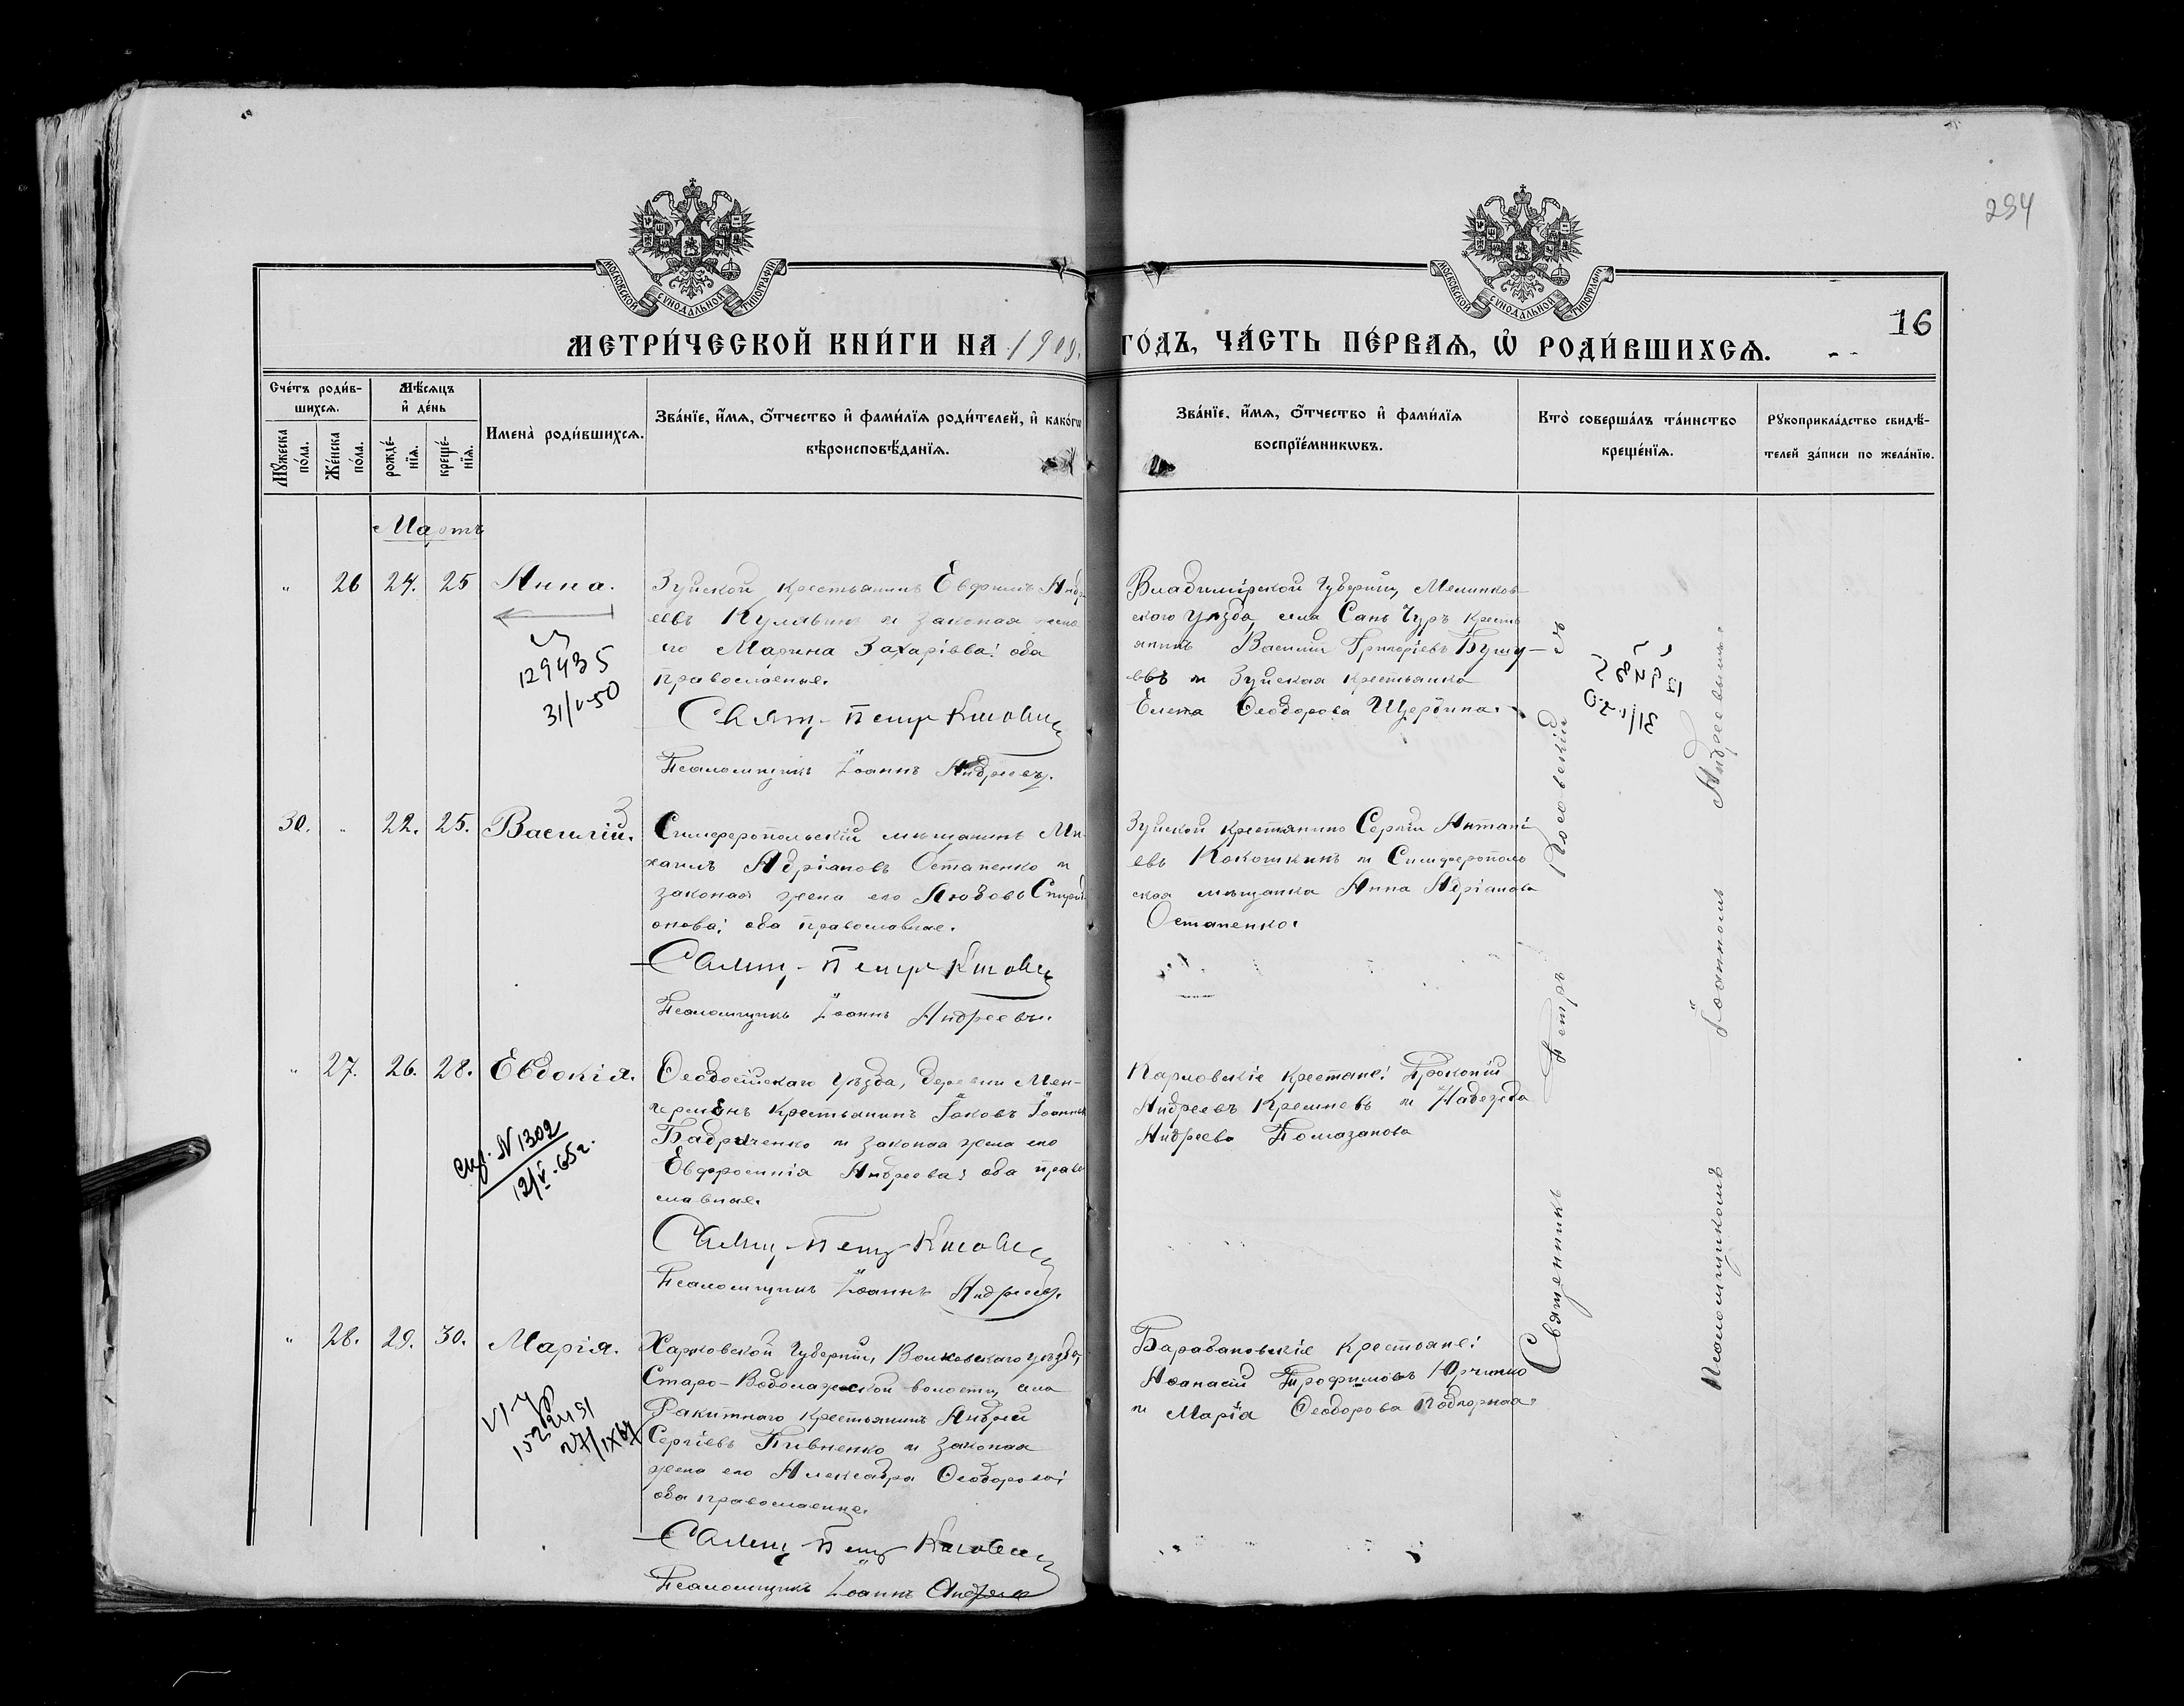 294
МОСКОВСКОЙ СѴНОДАЛЬНОЙ ТИПОГРАФІИ
МОСКОВСКОЙ СѴНОДАЛЬНОЙ ТИПОГРАФІИ
16
МЕТРИ́ЧЕСКОЙ КНИ́ГИ НА 1909. ГО́ДЪ, ЧА́СТЬ ПЕ́РВАѦ, Ѡ҆ РОДИ́ВШИХСѦ.
Сче́тъ роди́в-
шихсѧ.
Мꙋ́жеска по́ла.
Же́нска по́ла.
Мѣ́сѧцъ
и҆ де́нь
рожде́-
нїѧ.
креще́-
нїѧ.
Имена̀ роди́вшихсѧ.
Зва́нїе, и҆́мѧ, ѻ҆́тчество и҆ фами́лїѧ роди́телей, и҆ како́гѡ
вѣроисповѣ́данїѧ.
Зва́нїе, и҆́мѧ, ѻ҆́тчество и҆ фами́лїѧ
воспрїе́мникѡвъ.
Кто̀ соверша́лъ та́инство
креще́нїѧ.
Рꙋкоприкла́дство свидѣ́-
телей за́писи по жела́нїю.
Мартъ
" 26 24. 25 Анна.
Зуйской крестьянинъ Евфимъ Андр-
еевъ Кулявинъ и законая жена
его Марина Захарівва: оба
православные.
Свящ. Петръ
Псаломщикъ Іоаннъ Андреевъ.
129435
31/V-50
Владимірской Губерніи, Меленков-
ского Уѣзда, села Санъ Чуръ крест-
янинъ Василій Григоріевъ
евъ и Зуйская крестьянка
Елена Ѳеодорова Щербина.
30. " 22. 25. Василій.
Симферопольскій мѣщанинъ Ми-
хаилъ Адріановъ Остапенко и
законая жена его Любовь Спирид-
онова; оба православные.
Свящ. Петръ
Псаломщикъ Іоаннъ Андреевъ.
Зуйской крестянино Сергій Антані-
евъ Кокошкинъ и Симферополь
ская мѣщанка Анна Адріанова
Остапенко.
" 27. 26. 28. Евдокія.
Ѳеодосійскаго Уѣзда, деревни Мен-
герменъ крестьянинъ Іаковъ Іоанновъ
Бадриченко и законая жена его
Евфросинія Андреева; оба право-
славные.
Свящ. Петръ
Псаломщикъ Іоаннъ Андреевъ.
N 1302
12/V-65г.
Карловскіе крестане: Прокопій
Андреевъ Кремневъ и Надежда
Андреева Помазанова
" 28. 29. 30. Марія.
Харковской Губерніи, Волковскаго уѣзда,
Старо-Водолажской волости, села
Ракитнаго крестьянинъ Андрей
Сергіевъ Пивненко и законая
жена его Александра Ѳеодорова;
оба православные.
Свящ. Петръ
Псаломщикъ Іоаннъ Андреевъ
Барабановскіе крестьяне:
Аѳанасій Трофимовъ Юрченко
и Марія Ѳеодорова Подпорная.
Священникъ Петръ съ
Псаломщикомъ Іоанномъ Андреевымъ.